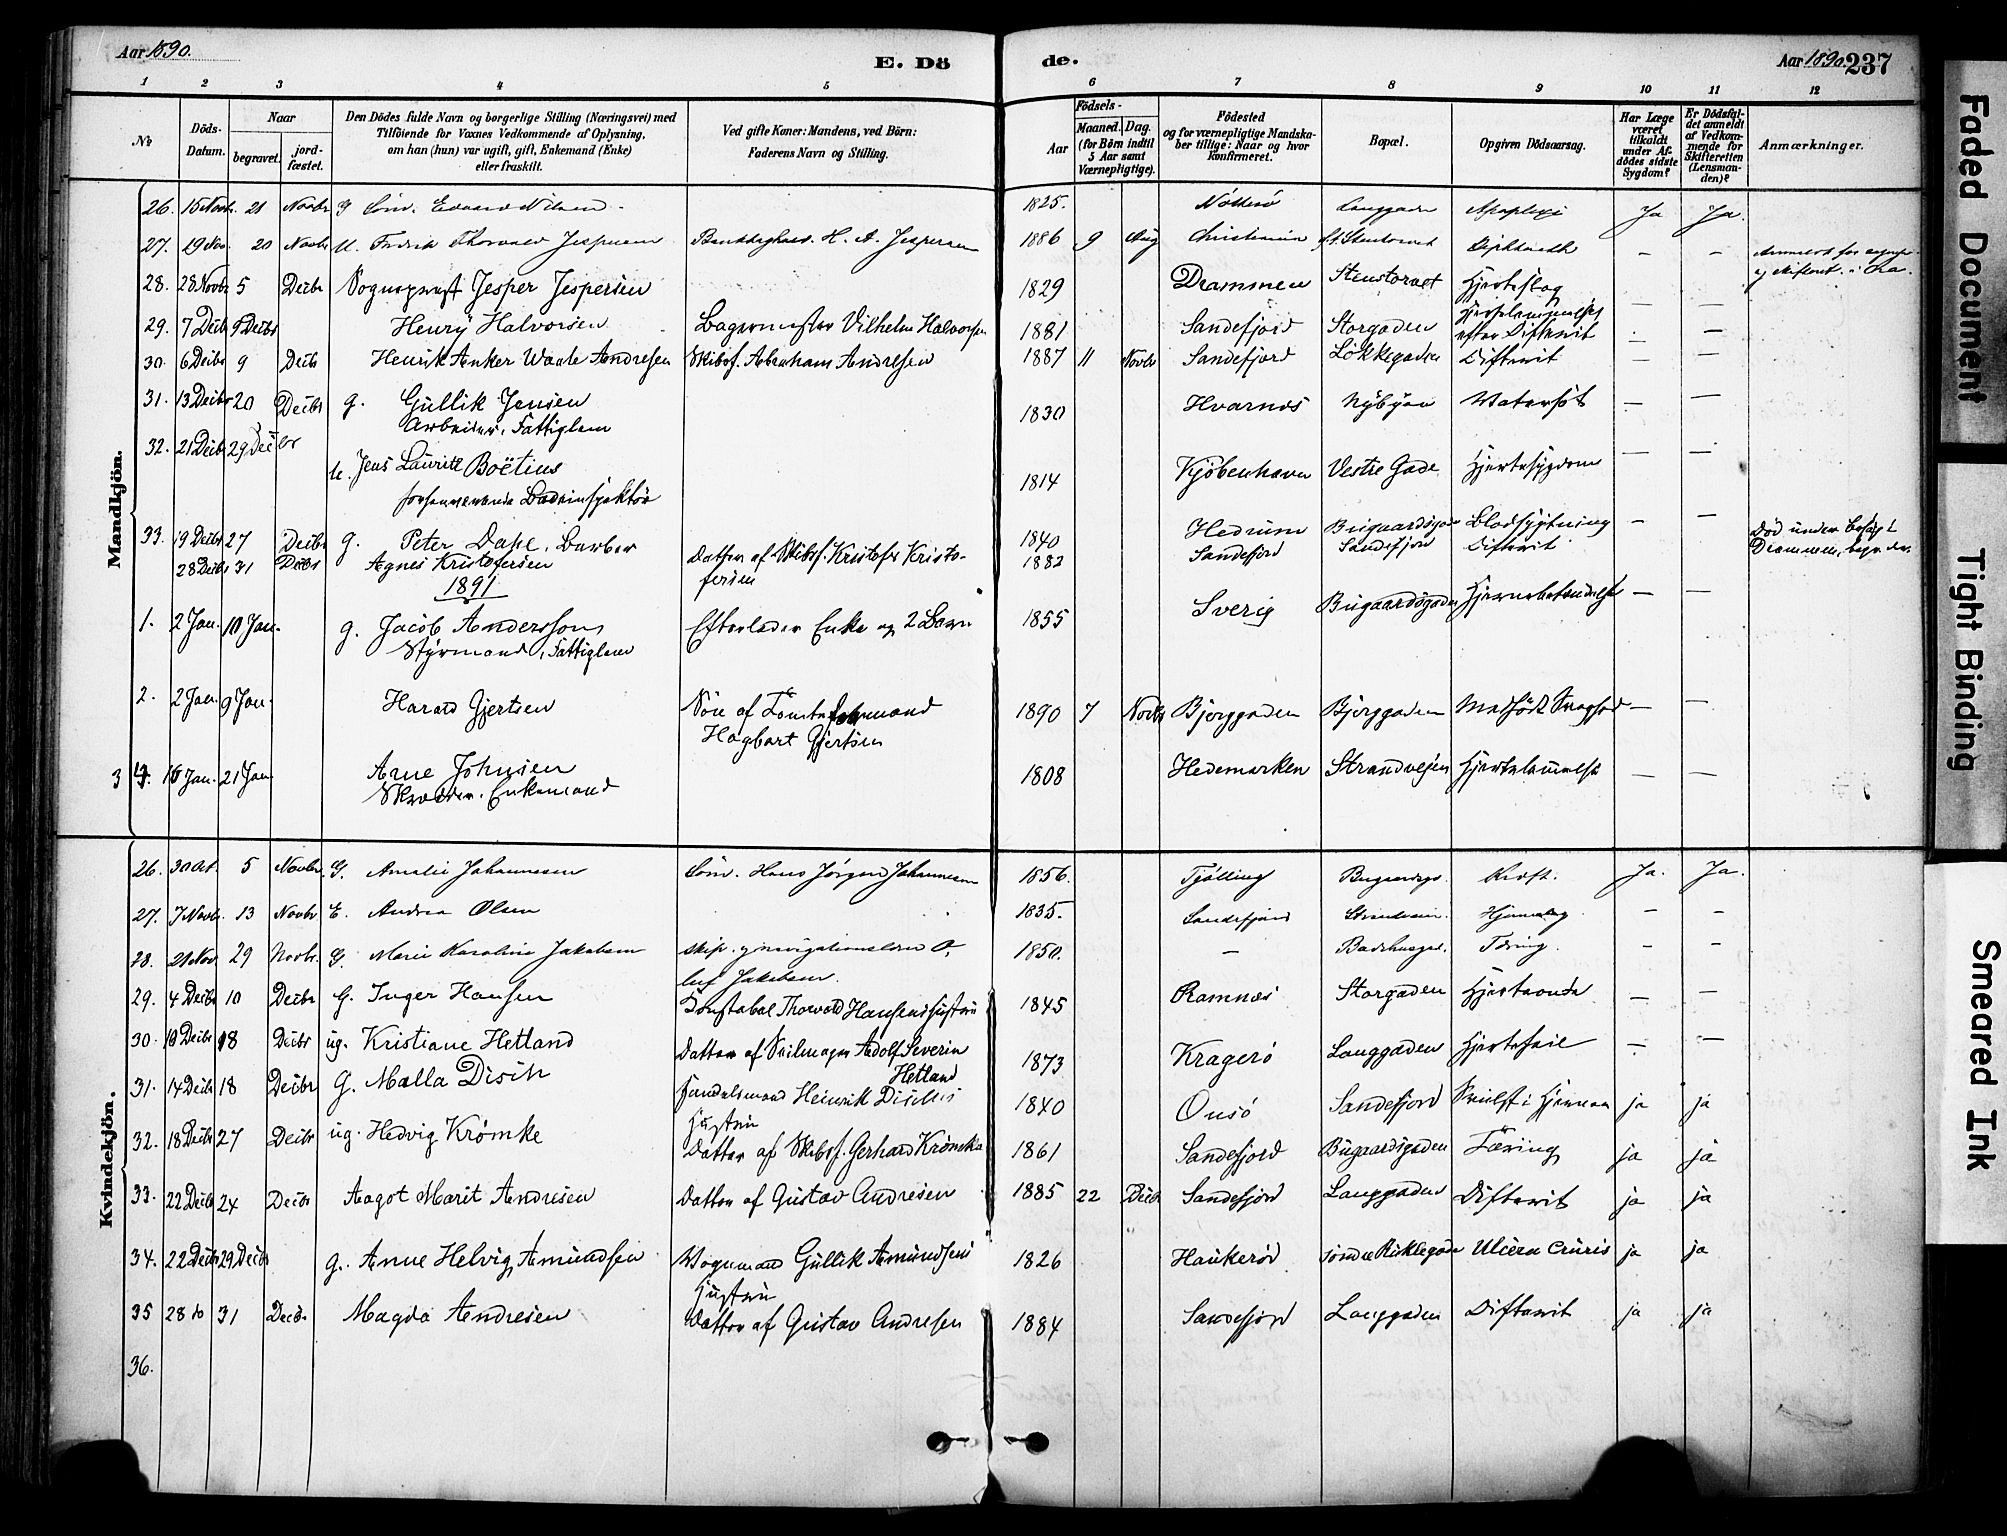 Aar 1890.
E. Dö
de.
Aar 1890.
237
1 2 3 4 5 6 7 8 9 10 11 12
No
Döds-Datum.
Naar
begravet.
jord-fæstet.
Den Dödes fulde Navn og borgerlige Stilling (Næringsvei) med
Tilföiende for Voxnes Vedkommende af Oplysning,
om han (hun) var ugift, gift, Enkemand (Enke)
eller fraskilt.
Ved gifte Koner: Mandens, ved Börn:
Faderens Navn og Stilling.
Födsels-
Aar
Maaned. Dag.
(for Börn indtil
5 Aar samt
Værnepligtige).
Födested
og for værnepligtige Mandska-
ber tillige: Naar og hvor
konfirmeret.
Bopæl.
Opgiven Dödsaarsag.
Har Læge
været
tilkaldt
under Af-
dödes sidste
Sygdom?
Er Dödsfal-
det anmeldt
af Vedkom-
mende for
Skifteretten
(Lensman-
den)?
Anmærkninger.
Mandkjön.
26. 15 Novbr. 21 Novbr G Söm. Edvard Nilsen 1825. Nötterö Langgaden Apoplexi Ja Ja.
27. 19 Nov. 20 Novbr U. Fredrik Thorvald Jespersen H. A. Jespersen 1886 9 Aug Christiania Difterit — —
28. 28 Novbr 5 Decbr Sogneprest Jesper Jespersen 1829 Drammen Stenstorvet Hjerteslag — —
29. 7 Decb 9 Decbr Henry Halvorsen Bagermester Vilhelm Halvorsen 1881 Sandefjord Storgaden Hjertelammelse
efter Difterit — —
30. 6 Decbr 9 Decb Henrik Anker Waale Andresen Skibsf. Abraham Andresen 1887 11 Novbr Sandefjord Løkkegaden Difterit — —
31. 13 Decbr 20 Decbr g. Gullik Jensen
Arbeider. Fattiglem 1830 Hvarnes Nybyen Watersot — —
32. 21 Decb 29 Decbr U. Jens Lauritz Boëtius
forhenværende Badeinspektör 1814 Kjöbenhavn Vestre Gade Hjertesygdom — —
33. 19 Decbr 27 Decbr g. Peter Dahl. Barber 1840 Hedrum Bugaardsgaden Blodspytning — — Död under besög i
Drammen, begr. der
28 Decbr 31 Decbr Agnes Kristofersen Datter af Skibsf. Kristofer Kristo-
fersen 1882 Sandefjord Sandefjord Difterit
1891
1. 2 Jan. 10 Jan. g. Jacob Andersson
Styrmand, Fattiglem Efterlader Enke og 2 Børn 1855 Sverig Bugaardsgaden Hjernebetændelse — —
2. 2 Jan. 9 Jan. Harald Gjertsen Sön af Tomteformand
Hagbart Gjertsen 1890 7 Novbr Bjerggaden Bjerggaden Medfödt Svaghed — —
3 4. 16 Jan. 21 Jan Arne Johnsen
Skrædder. Enkemand 1808 Hedemarken Strandvejen Hjertelammelse — —
Kvindekjön.
26. 30 Oct. 5 Novbr. G. Amalie Johannesen Söm. Hans Jörgen Johannesen 1856. Tjölling Bugaardsg. Kræft. Ja. Ja.
27. 7 Novbr. 13 Novbr E. Andrea Olsen 1835. Sandefjord Strandveien Hjerneslag — —
28. 21 Nov. 29 Novbr. G. Marie Karoline Jakobsen skip. og navigationslærer O-
luf Jakobsen. 1850. — Badehusgd. Tæring. — —
29. 4 Decbr 10 Decbr G. Inger Hansen Konstabel Thorvald Hansens hustru 1845 Ramnæs Storgaden Hjerteonde — —
30. 10 Decbr 18 Decbr ug. Kristiane Hetland Datter af Seilmager Adolf Severin
Hetland 1873 Kragerö Langgaden Hjertefeil — —
31. 14 Decbr 18 Decbr G. Malla Disch Handelsmand Heinrik Dischs
Hustru 1840 Onsö Sandefjord Svulst i Hjernen ja ja
32. 18 Decbr 27 Decbr ug. Hedvig Krömke Datter af Skibsf. Gerhard Krömke 1861 Sandefjord Bugaardsgaden Tæring ja ja
33. 22 Decbr 24 Decbr Aagot Marit Andresen Datter af Gustav Andresen 1885 22 Decbr Sandefjord Langgaden Difterit ja ja
34. 22 Decbr 29 Decbr g. Anne Helvig Amundsen Wognmand Gullik Amundsens
Hustru 1826 Haukeröd Søndre Ulcera cruris ja ja
35 28 do 31 Decbr Magda Andresen Datter af Gustav Andresen 1884 Sandefjord Langgaden Difterit ja ja
36.
Faded Document
Tight Binding
Smeared Ink